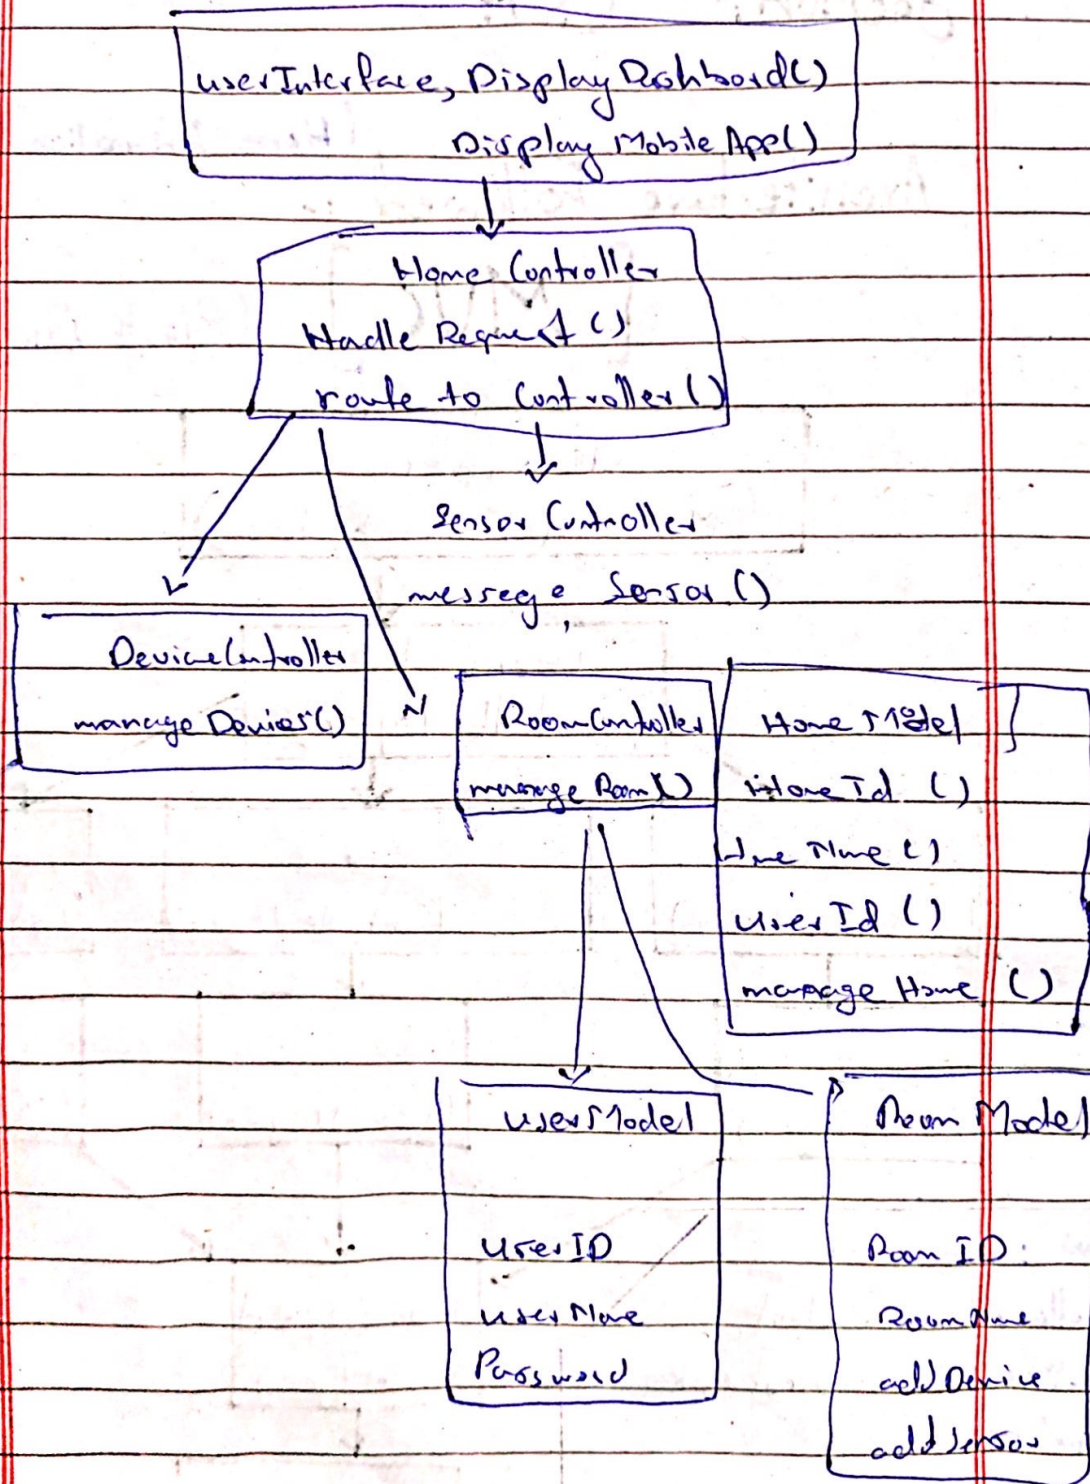 userInterface, Display Dashbord()
Display Mobile App()
Home Controller
Hadle Request ()
route to Controller ()
Sensor Controller
messege Sensor ()
DeviceController
manage Devices()
RoomController
manage Room()
Home Model
Home Id ()
Home Name ()
user Id ()
manage Home ()
userModel
User ID
user Name
Password
Room Model
Room ID
Room Name
add Device
add sensor